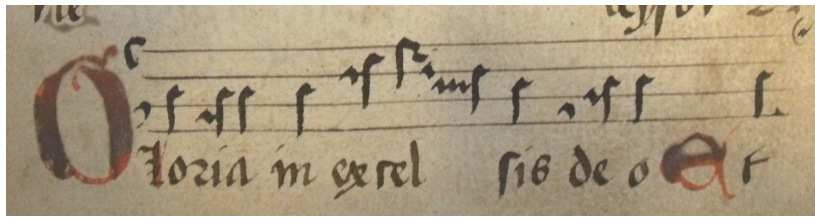 Gloria in excelsis deo Et